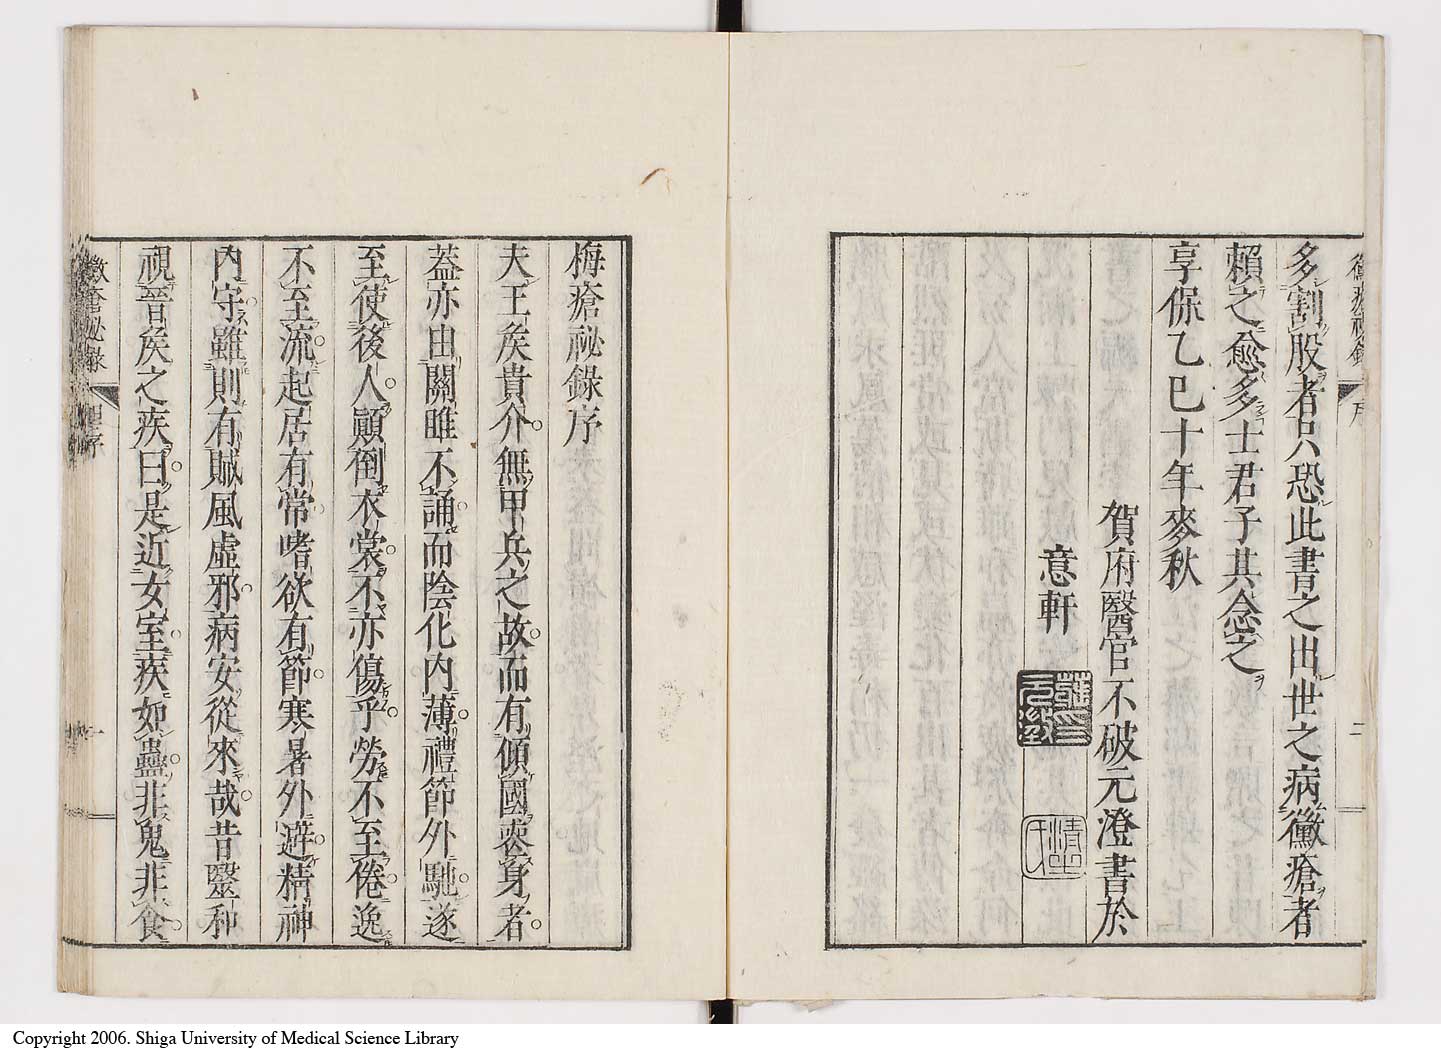 多割股者只恐此書之出世之病黴瘡者
賴之愈多士君子其念之
享保乙巳十年麥秋
賀府醫官不破元澄書於
意軒
梅瘡祕錄序
夫王矦貴介無甲兵之故而有傾國喪身者
蓋亦由關雎不誦而陰化内薄禮節外馳遂
至使後人顚倒衣裳不亦傷乎勞不至倦逸
不至流起居有常嗜欲有節寒暑外避精神
内守雖則有賊風虛邪病安從來哉昔毉和
視晉矦之疾曰是近女室疾如蠱非鬼非食
黴瘡祕錄
序
Copyright 2006. Shiga University of Medical Science Library